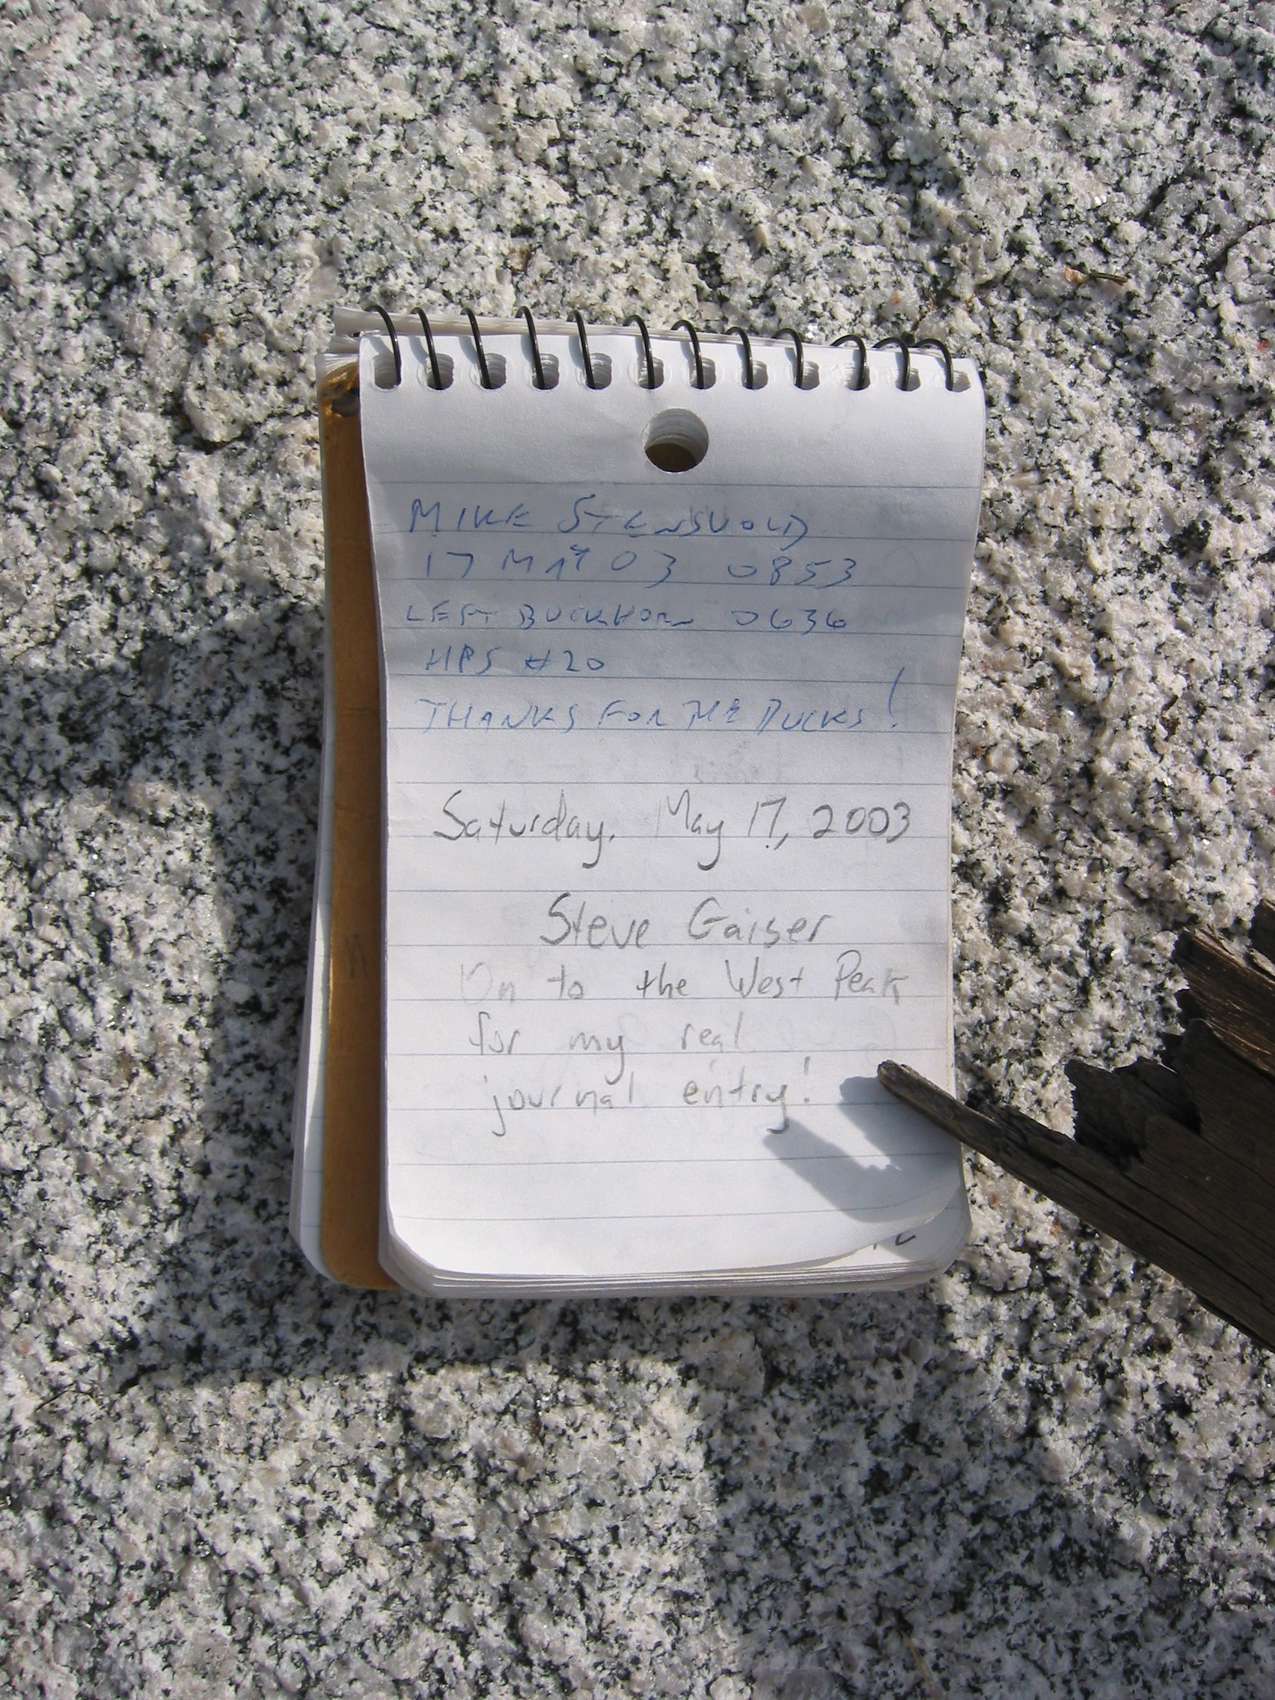 MIKE STENSVOLD
17 MAY 03 0853
LEFT BUCKHORN 0636
HPS #20
THANKS FOR THE DUCKS!
Saturday, May 17, 2003
Steve Gaiser
On to the West Peak
for my real
journal entry!